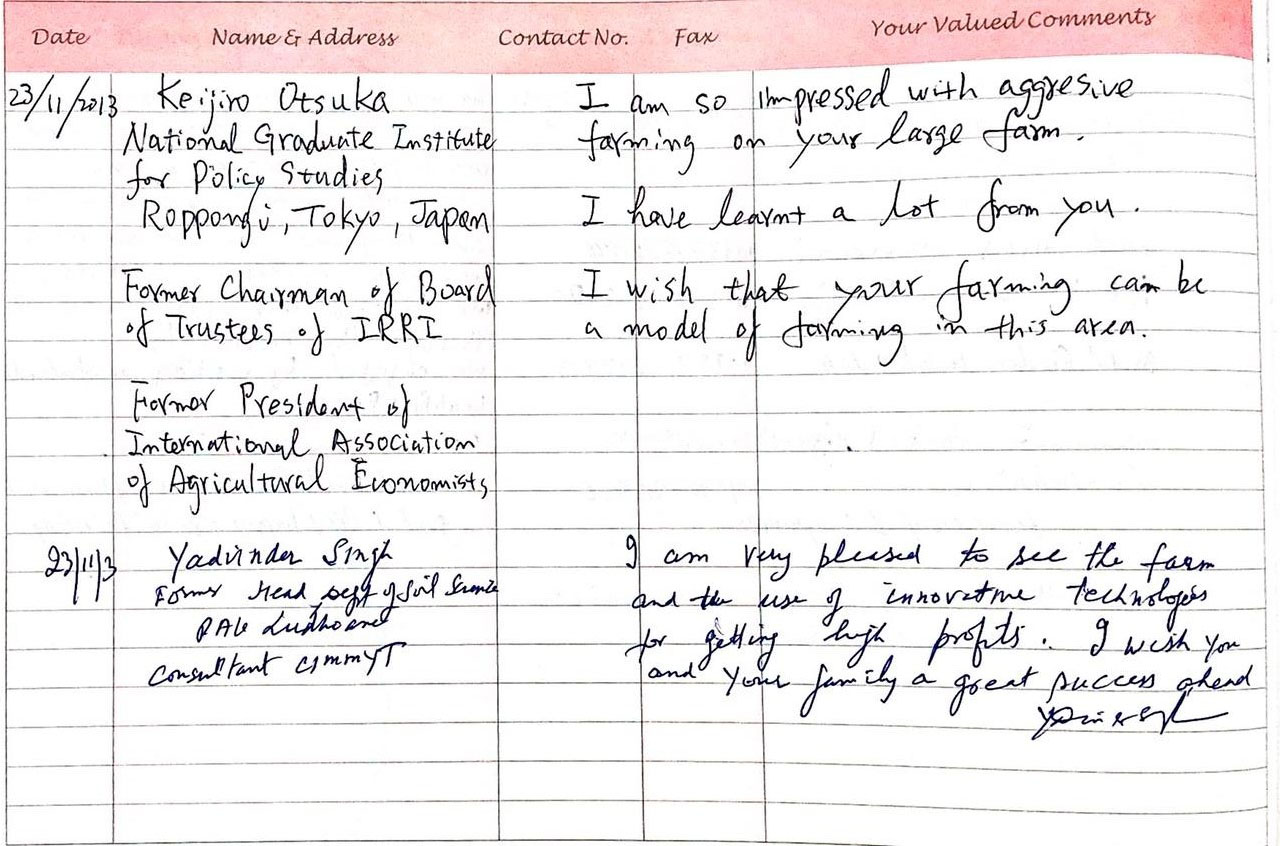 Date Name & Address Contact No. Fax Your Valued Comments
23/11/2013 Keijiro Otsuka
National Graduate Institute
for Policy Studies
Roppongi, Tokyo, Japan
Former Chairman of Board
of Trustees of IRRI
Former President of
International Association
of Agricultural Economists
I am so impressed with aggresive
farming on your large farm.
I have learnt a lot from you.
I wish that your farming can be
a model of farming in this area.
23/11/3 Yadvinder Singh
Former Head Dept of Soil Science
PAU Ludhiana
Consultant CIMMYT
I am very pleased to see the farm
and the use of innovative technologies
for getting high profits. I wish you
and your family a great success ahead